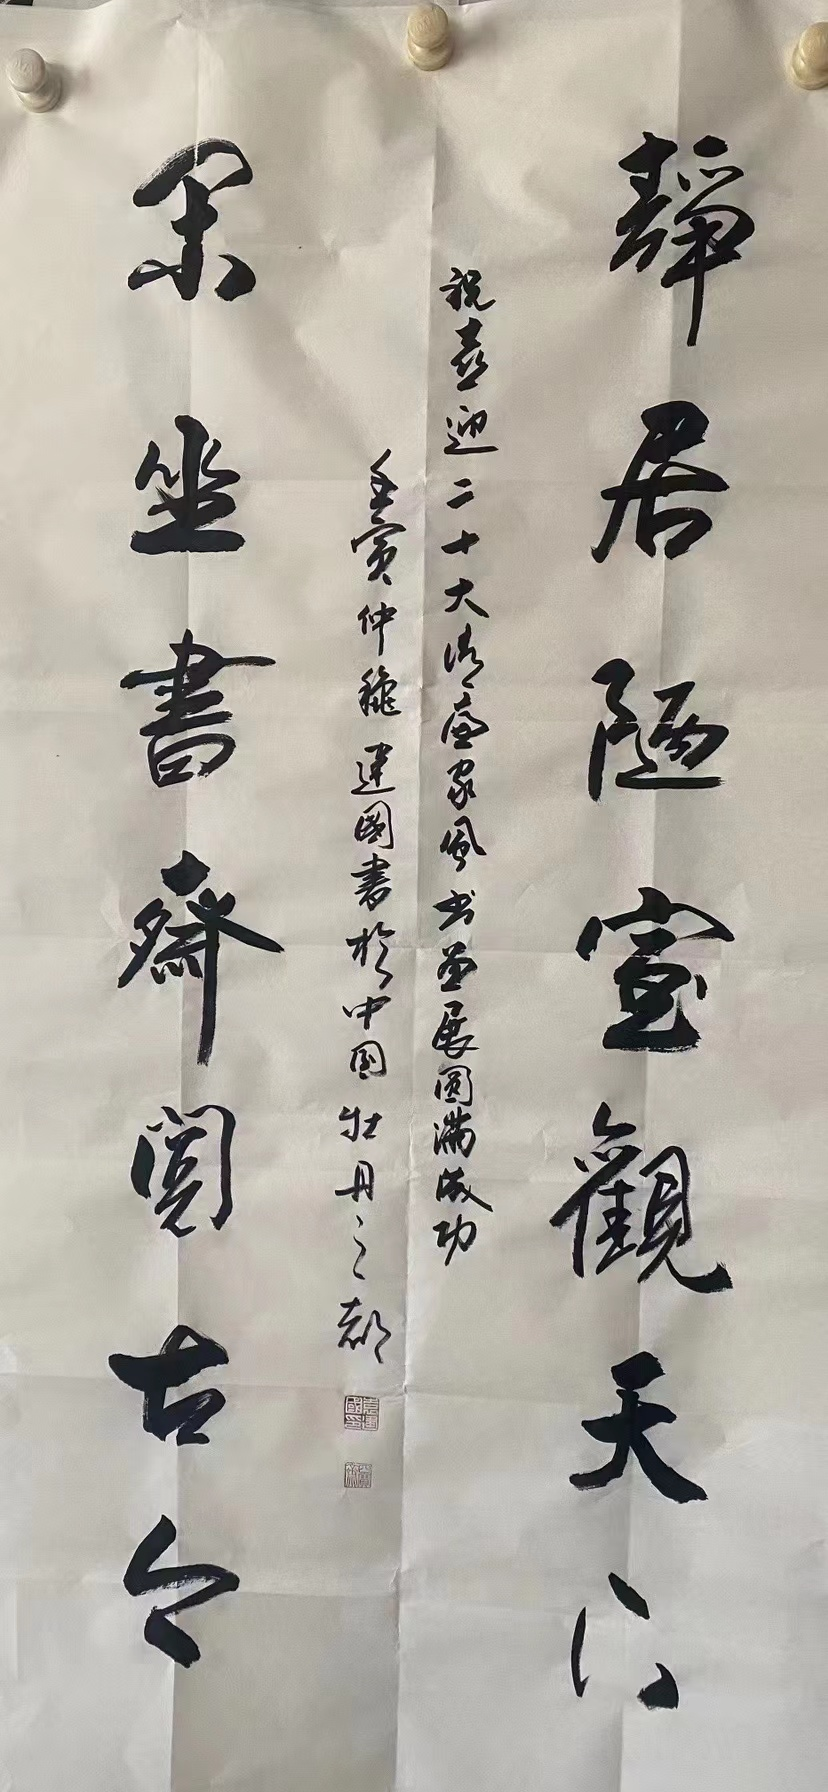 靜居陋室觀天下
祝喜迎二十大清廉家風书画展圓滿成功
壬寅仲龝建國書於中国牡丹之都
閑坐書齋閱古今